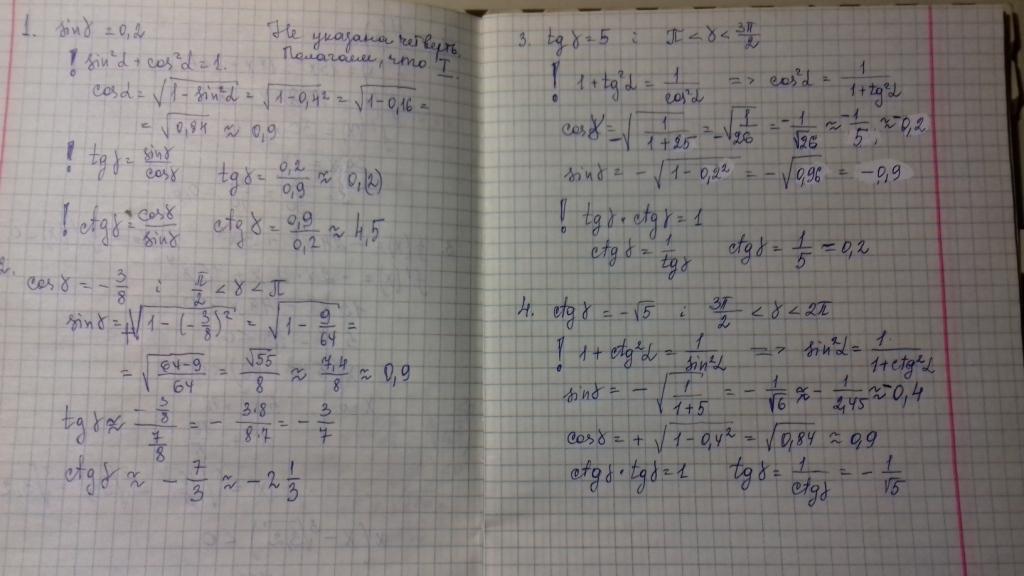 1. sinγ = 0,2 Не указана четверть.
Полагаем, что I
! sin²α + cos²α = 1.
cosα = √(1 - sin²α) = √(1 - 0,4²) = √(1 - 0,16) =
= √0,84 ≈ 0,9
! tgγ = sinγ/cosγ tgγ = 0,2/0,9 ≈ 0,(2)
! ctgγ = cosγ/sinγ ctgγ = 0,9/0,2 ≈ 4,5
2. cosγ = -3/8 i π/2 < γ < π
sinγ = +√(1 - (-3/8)²) = √(1 - 9/64) =
= √((64-9)/64) = √55/8 ≈ 7,4/8 ≈ 0,9
tgγ ≈ -(3/8)/(7/8) = -(3·8)/(8·7) = -3/7
ctgγ ≈ -7/3 ≈ -2 1/3
3. tgγ = 5 i π < γ < 3π/2
! 1 + tg²α = 1/cos²α => cos²α = 1/(1 + tg²α)
cosγ = -√(1/(1+25)) = -√(1/26) = -1/√26 ≈ -1/5 ≈ -0,2
sinγ = -√(1 - 0,2²) = -√0,96 = -0,9
! tgγ · ctgγ = 1
ctgγ = 1/tgγ ctgγ = 1/5 = 0,2
4. ctgγ = -√5 i 3π/2 < γ < 2π
! 1 + ctg²α = 1/sin²α => sin²α = 1/(1 + ctg²α)
sinγ = -√(1/(1+5)) = -1/√6 ≈ -1/2,45 ≈ -0,4
cosγ = +√(1 - 0,4²) = √0,84 ≈ 0,9
ctgγ · tgγ = 1 tgγ = 1/ctgγ = -1/√5